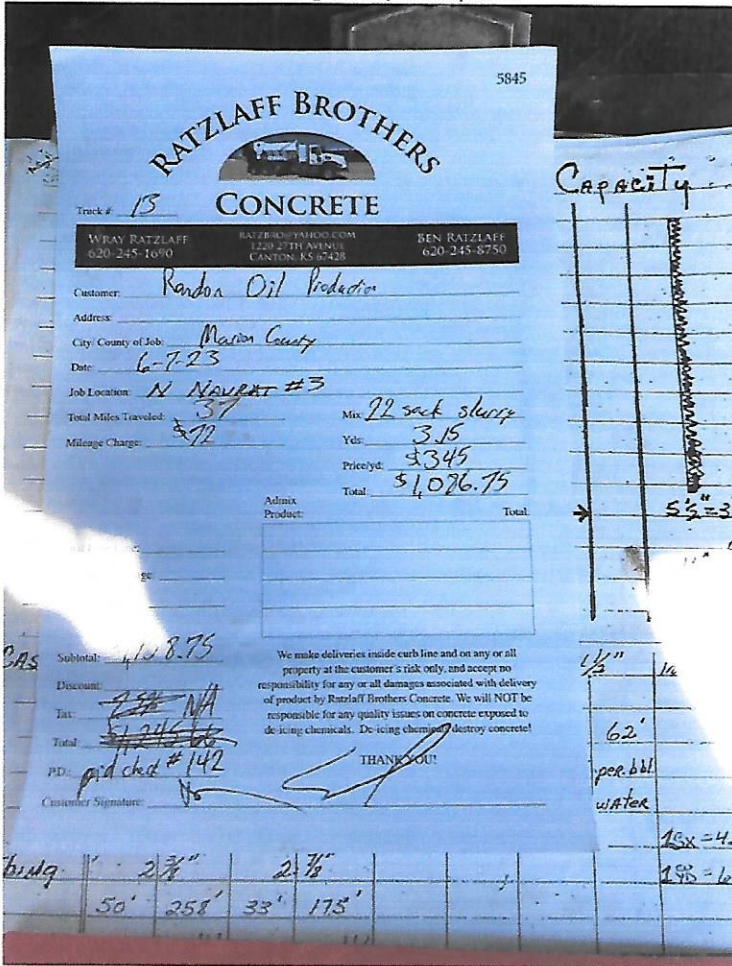 5845
RATZLAFF BROTHERS
CONCRETE
Truck #: 13
WRAY RATZLAFF
620-245-1690
RATZBRO@YAHOO.COM
1220 27TH AVENUE
CANTON, KS 67428
BEN RATZLAFF
620-245-8750
Customer: Rondon Oil Production
Address:
City/ County of Job: Marion County
Date: 6-7-23
Job Location: N NAVRAT #3
Total Miles Traveled: 37
Mileage Charge: $72
Mix: 22 sack slurry
Yds: 3.15
Price/yd: $345
Total $1,086.75
Admix
Product:
Total:
Subtotal: 8.75
We make deliveries inside curb line and on any or all
property at the customer's risk only, and accept no
responsibility for any or all damages associated with delivery
of product by Ratzlaff Brothers Concrete. We will NOT be
responsible for any quality issues on concrete exposed to
de-icing chemicals. De-icing chemicals destroy concrete!
THANK YOU!
Discount:
Tax: NA
Total
P.D.: pid check # 142
Customer Signature:
CAPACITY
5'2"=3
CAS
1 1/2"
62'
per.bbl
WATER
1SX=4.
2 3/8" 2 7/8"
50' 258' 33' 173'